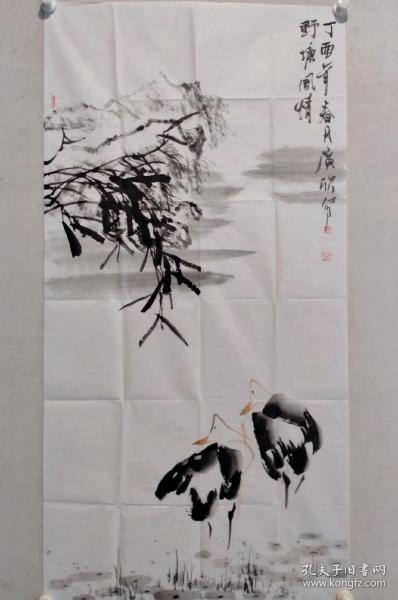 野塘風情
丁酉年春月廣欣作
孔夫子旧书网
www.kongfz.com